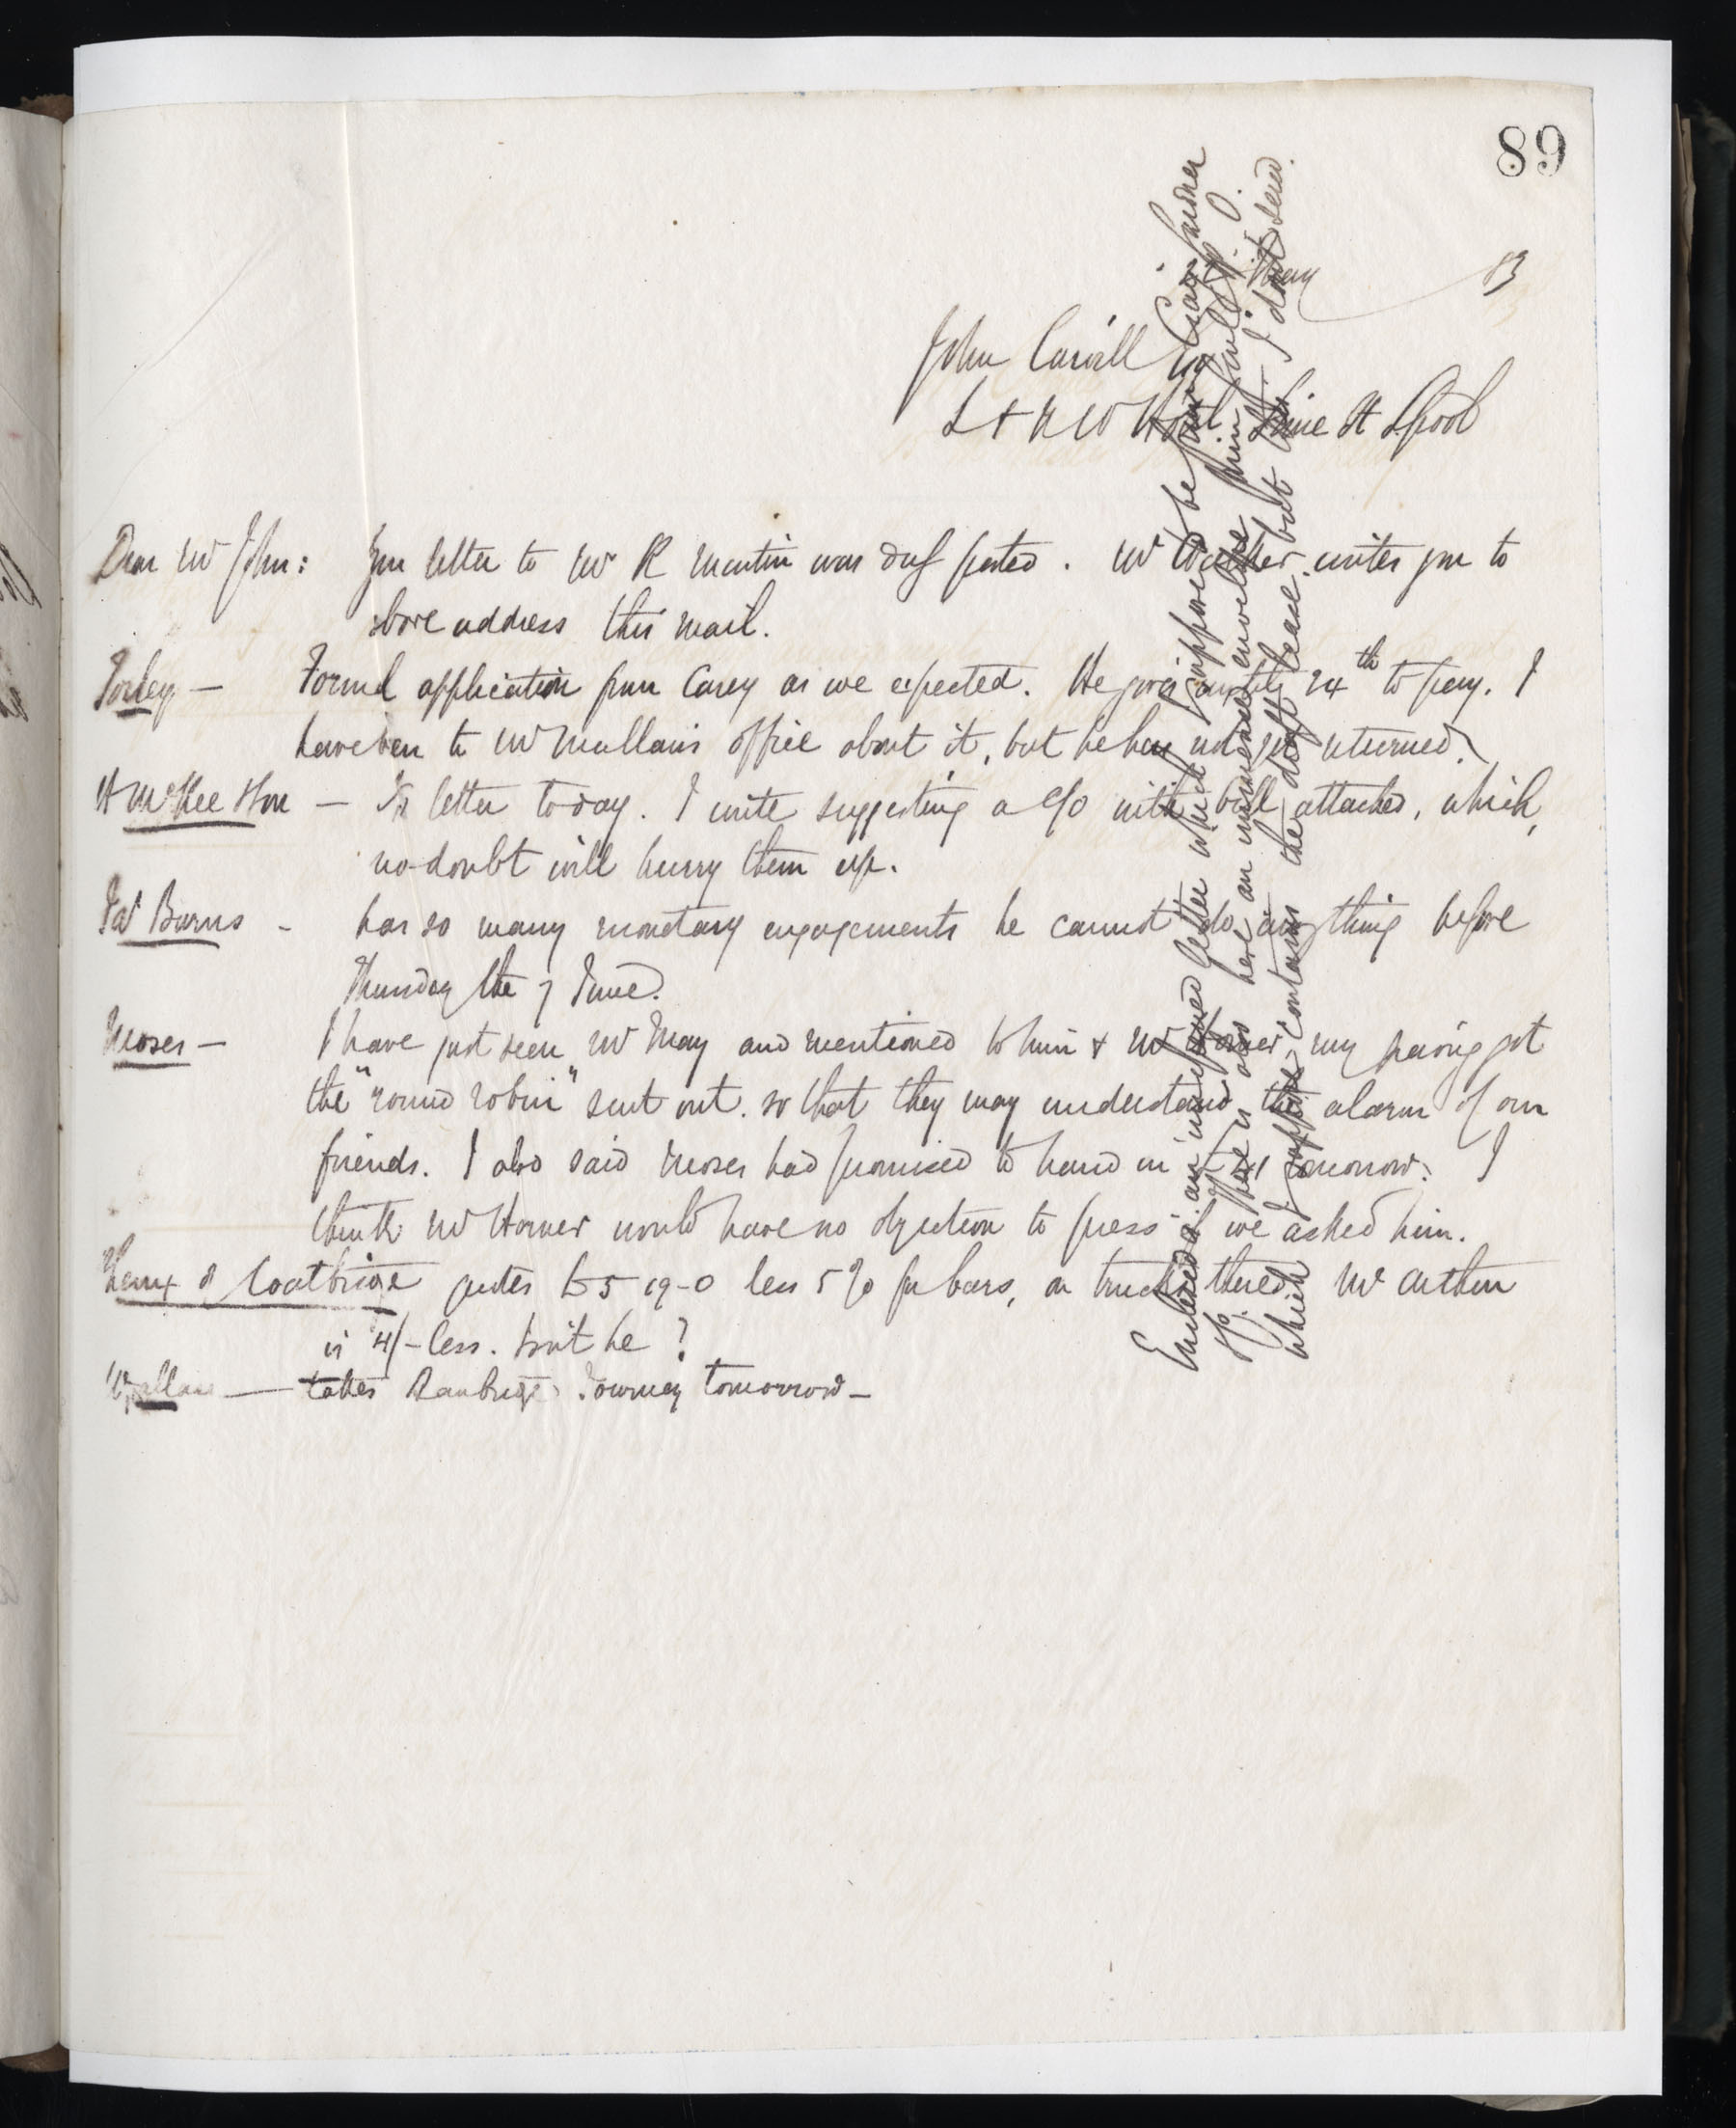 89
83
John Carvill Esq
L & N W Hotel Lime St Lpool
Dear Mr John: Your letter to Mr R Martin was duly posted. Mr Walker writes you to
above address this mail.
Torley — Formal application from Carey as we expected. He gives until 24th to pay. I
have been to Mr Mullan's office about it, but he has not yet returned.
H McKee & Son — letter today. I write suggesting a c/o with bill attached, which,
no doubt will hurry them up.
Burns - has so many monetary engagements he cannot do anything before
Thursday the 7 June.
Moses — I have just seen Mr May and mentioned to him & Mr Horner my having got
the "round robin" sent out. so that they may understand the alarm of our
friends. I also said Moses had promised to hand in tomorrow: I
think Mr Horner would have no objection to press if we asked him.
& Coatbridge quotes £5-19-0 less 5% for bars, on trucks there. Mr Arthur
is 4/- less. Isn't he?
Wallace — takes Banbridge Journey tomorrow —
Enclosed is an unopened letter which I suppose to be from Craig Gardner
There is also here an immense envelope from
which I suppose contains the draft lease but I dont send.